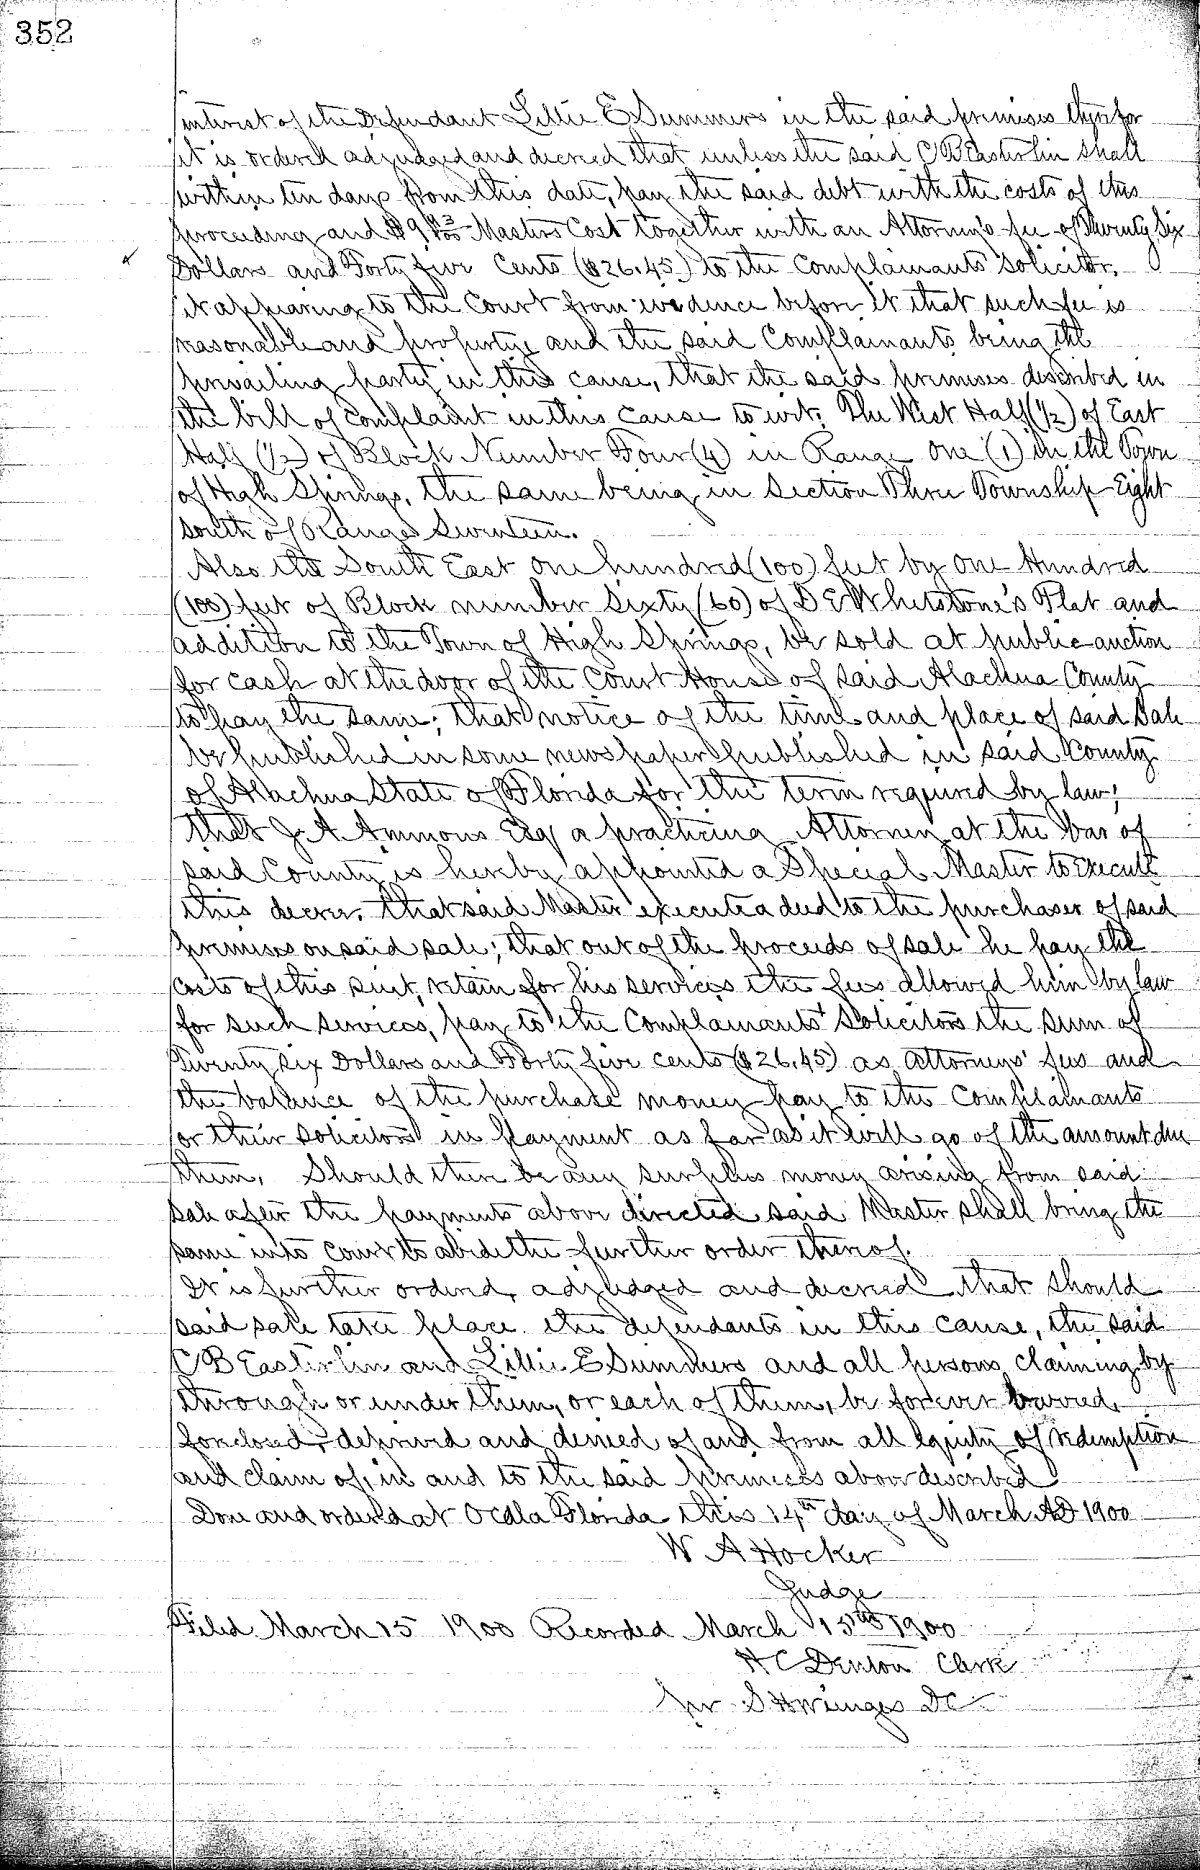 352
interest of the Defendant Lillie E Summers in the said premises therefor
it is ordered adjudged and decreed that unless the said C B Easterlin shall
within ten days from this date, pay the said debt with the costs of this
proceeding and $9 Masters Cost together with an Attorney's fee of Twenty Six
Dollars and Forty five Cents ($26.45) to the Complainants Solicitor,
it appearing to the Court from evidence before it that such fee is
reasonable and and the said Complainants being the
prevailing party in this cause, that the said premises described in
the bill of complaint in this cause to wit: The West Half (1/2) of East
Half (1/2) of Block Number Four (4) in Range One (1) in the Town
of High Springs, the same being in Section Three Township Eight
South of Range Seventeen.
Also the South East One hundred (100) feet by One Hundred
(100) feet of Block number Sixty (60) of D E Whetstone's Plat and
addition to the Town of High Springs, be sold at public auction
for cash at the door of the Court House of said Alachua County
to pay the same; that notice of the time and place of said Sale
be published in some newspaper published in said County
of Alachua State of Florida for the term required by law;
that J. A. Ammons Esq a practicing Attorney at the bar of
said County is hereby appointed a Special Master to Execute
this decree, that said Master execute a deed to the purchaser of said
premises on said sale; that out of the proceeds of sale he pay the
costs of this suit, retain for his services the fees allowed him by law
for such services, pay to the Complainants' Solicitors the sum of
Twenty Six Dollars and Forty five cents ($26.45) as attorneys' fees and
the balance of the purchase money pay to the Complainants
or their solicitors in payment as far as it will go of the amount due
them. Should there be any surplus money arising from said
sale after the payments above directed said Master shall bring the
same into court to abide the further order thereof.
It is further ordered, adjudged and decreed that should
said sale take place the defendants in this cause, the said
C B Easterlin and Lillie E Summers and all persons claiming by
through or under them, or each of them, be forever barred,
foreclosed, deprived and denied of and from all Equity of redemption
and claim of, in and to the said premises above described
Done and ordered at Ocala Florida this 14th day of March AD 1900
W A Hocker
Judge
Filed March 15 1900 Recorded March 15th 1900
H C Denton Clerk
per S H Wienges DC